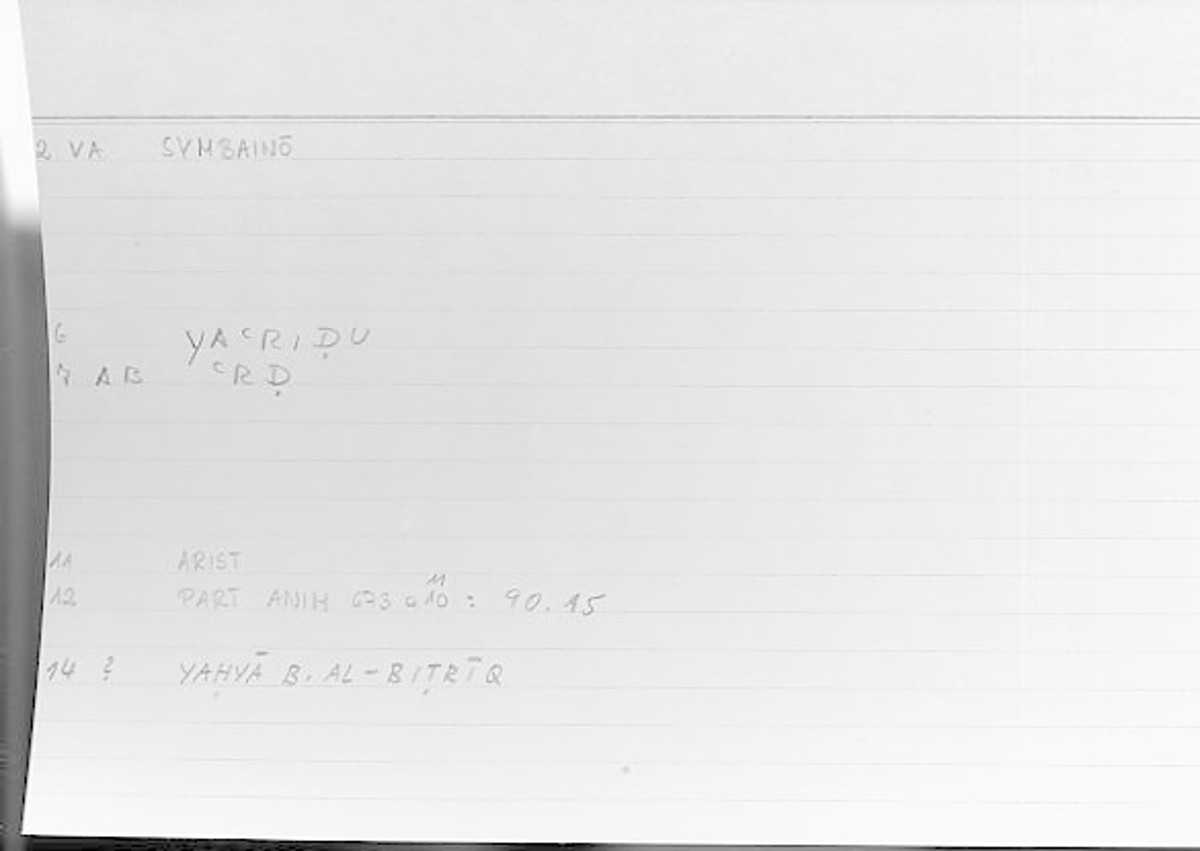 2 VA SYMBAINŌ
6 YAʿRIḌU
7 AB ʿRḌ
11 ARIST
11
12 PART ANIM 673 a 10 : 90.15
14 ? YAḤYĀ B. AL-BIṬRĪQ